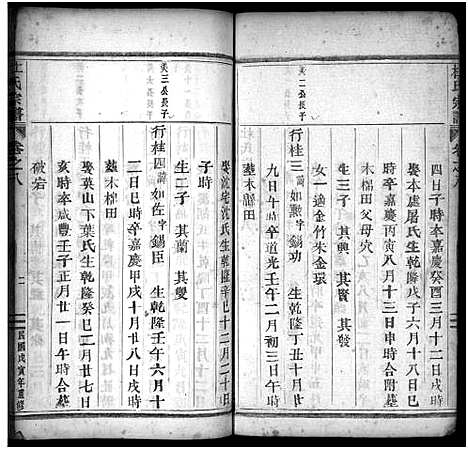 杜氏宗譜
卷之八
四日子時卒嘉慶癸酉三月十二日戌時
娶本處屠氏生乾隆戊子六月十八日巳
時卒嘉慶丙寅八月十三日申時合
木棉田父母穴
生三子 其興 其賢 其發
女一適金竹朱金環
英二公長子
行桂三 諱如勲 字錫功 生乾隆丁丑十月
九日午時卒道光壬午二月初三日午時
葬木棉田
娶沈宅沈氏生乾隆辛巳十二月二十日
子時
生二子 其蘭 其雙
英三公長子
行桂四 諱如佐 字錫臣 生乾隆壬午六月十
一日巳時卒嘉慶甲戌十月廿八日戌時
葬木棉田
娶英山下葉氏生乾隆癸巳二月廿七日
亥時卒咸豐壬子正月廿一日午時合墓
破宕
杜氏宗譜
卷之八
民國戊寅年重修